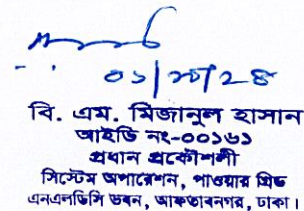 ০১/১০/২৪
বি. এম. মিজানুল হাসান
আইডি নং-০০১৬১
প্রধান প্রকৌশলী
সিস্টেম অপারেশন, পাওয়ার গ্রিড
এনএলডিসি ভবন, আফতাবনগর, ঢাকা।